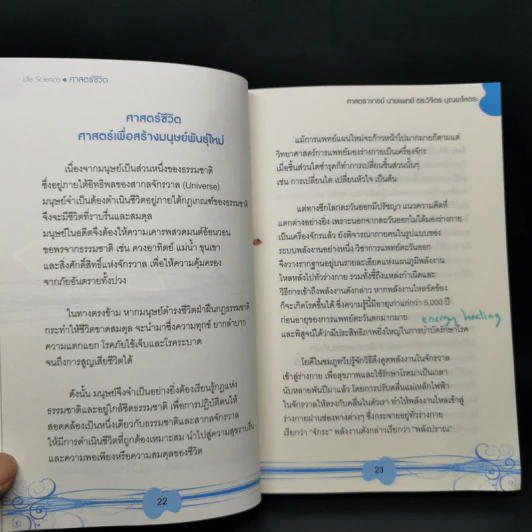 Life Science ● ศาสตร์ชีวิต
ศาสตร์ชีวิต
ศาสตร์เพื่อสร้างมนุษย์พันธุ์ใหม่
เนื่องจากมนุษย์เป็นส่วนหนึ่งของธรรมชาติ
ซึ่งอยู่ภายใต้อิทธิพลของสากลจักรวาล (Universe)
มนุษย์จำเป็นต้องดำเนินชีวิตอยู่ภายใต้กฎเกณฑ์ของธรรมชาติ
จึงจะมีชีวิตที่ราบรื่นและสมดุล
มนุษย์ในอดีตจึงต้องให้ความเคารพสวดมนต์อ้อนวอน
ขอพรจากธรรมชาติ เช่น ดวงอาทิตย์ แม่น้ำ ขุนเขา
และสิ่งศักดิ์สิทธิ์แห่งจักรวาล เพื่อให้ความคุ้มครอง
จากภัยอันตรายทั้งปวง
ในทางตรงข้าม หากมนุษย์ดำรงชีวิตฝ่าฝืนกฎธรรมชาติ
กระทำให้ชีวิตขาดสมดุล จะนำมาซึ่งความทุกข์ ยากลำบาก
ความแตกแยก โรคภัยไข้เจ็บและโรคระบาด
จนถึงการสูญเสียชีวิตได้
ดังนั้น มนุษย์จึงจำเป็นอย่างยิ่งต้องเรียนรู้กฎแห่ง
ธรรมชาติและอยู่ใกล้ชิดธรรมชาติ เพื่อการปฏิบัติตนให้
สอดคล้องเป็นหนึ่งเดียวกับธรรมชาติและสากลจักรวาล
ให้มีการดำเนินชีวิตที่ถูกต้องเหมาะสม นำไปสู่ความสุขราบรื่น
และความพอเพียงหรือความสมดุลของชีวิต
22
ศาสตราจารย์ นายแพทย์ ดร.วิจิตร บุณยะโหตระ
แม้การแพทย์แผนใหม่จะก้าวหน้าไปมากมายก็ตามแต่
วิทยาศาสตร์การแพทย์มองร่างกายเป็นเครื่องจักร
เมื่อชิ้นส่วนใดชำรุดก็ทำการเปลี่ยนชิ้นส่วนนั้นๆ
เช่น การเปลี่ยนไต เปลี่ยนหัวใจ เป็นต้น
แต่ทางซีกโลกตะวันออกมีปรัชญา แนวความคิดที่
แตกต่างอย่างยิ่ง เพราะนอกจากตะวันออกไม่ได้มองร่างกาย
เป็นเครื่องจักรแล้ว ยังพิจารณากายคนในรูปแบบของ
ระบบพลังงานอย่างหนึ่ง วิชาการแพทย์ตะวันออก
จึงวางรากฐานอยู่บนรายละเอียดแห่งแผนภูมิพลังงาน
ไหลหลั่งไปทั่วร่างกาย รวมทั้งชี้ถึงแหล่งกำเนิดและ
วิธีการเข้าถึงพลังงานดังกล่าว หากพลังงานไหลขัดข้อง
ก็จะเกิดโรคขึ้นได้ ซึ่งความรู้นี้มีอายุเก่าแก่กว่า 5,000 ปี
ก่อนอายุของการแพทย์ตะวันตกมากมาย
energy healing
และพิสูจน์ได้ว่ามีประสิทธิภาพยิ่งใหญ่ในการบำบัดรักษาโรค
โยคีในชมพูทวีปรู้จักวิธีดึงดูดพลังงานในจักรวาล
เข้าสู่ร่างกาย เพื่อสุขภาพและใช้รักษาโรคมาเป็นเวลา
นับหลายพันปีมาแล้ว โดยการปรับคลื่นแม่เหล็กไฟฟ้า
ในจักรวาลให้ตรงกับคลื่นในตัวเรา ทำให้พลังงานไหลเข้าสู่
ร่างกายผ่านช่องทางต่างๆ ซึ่งกระจายอยู่ทั่วร่างกาย
เรียกว่า “จักระ” พลังงานดังกล่าวเรียกว่า “พลังปราณ”
23